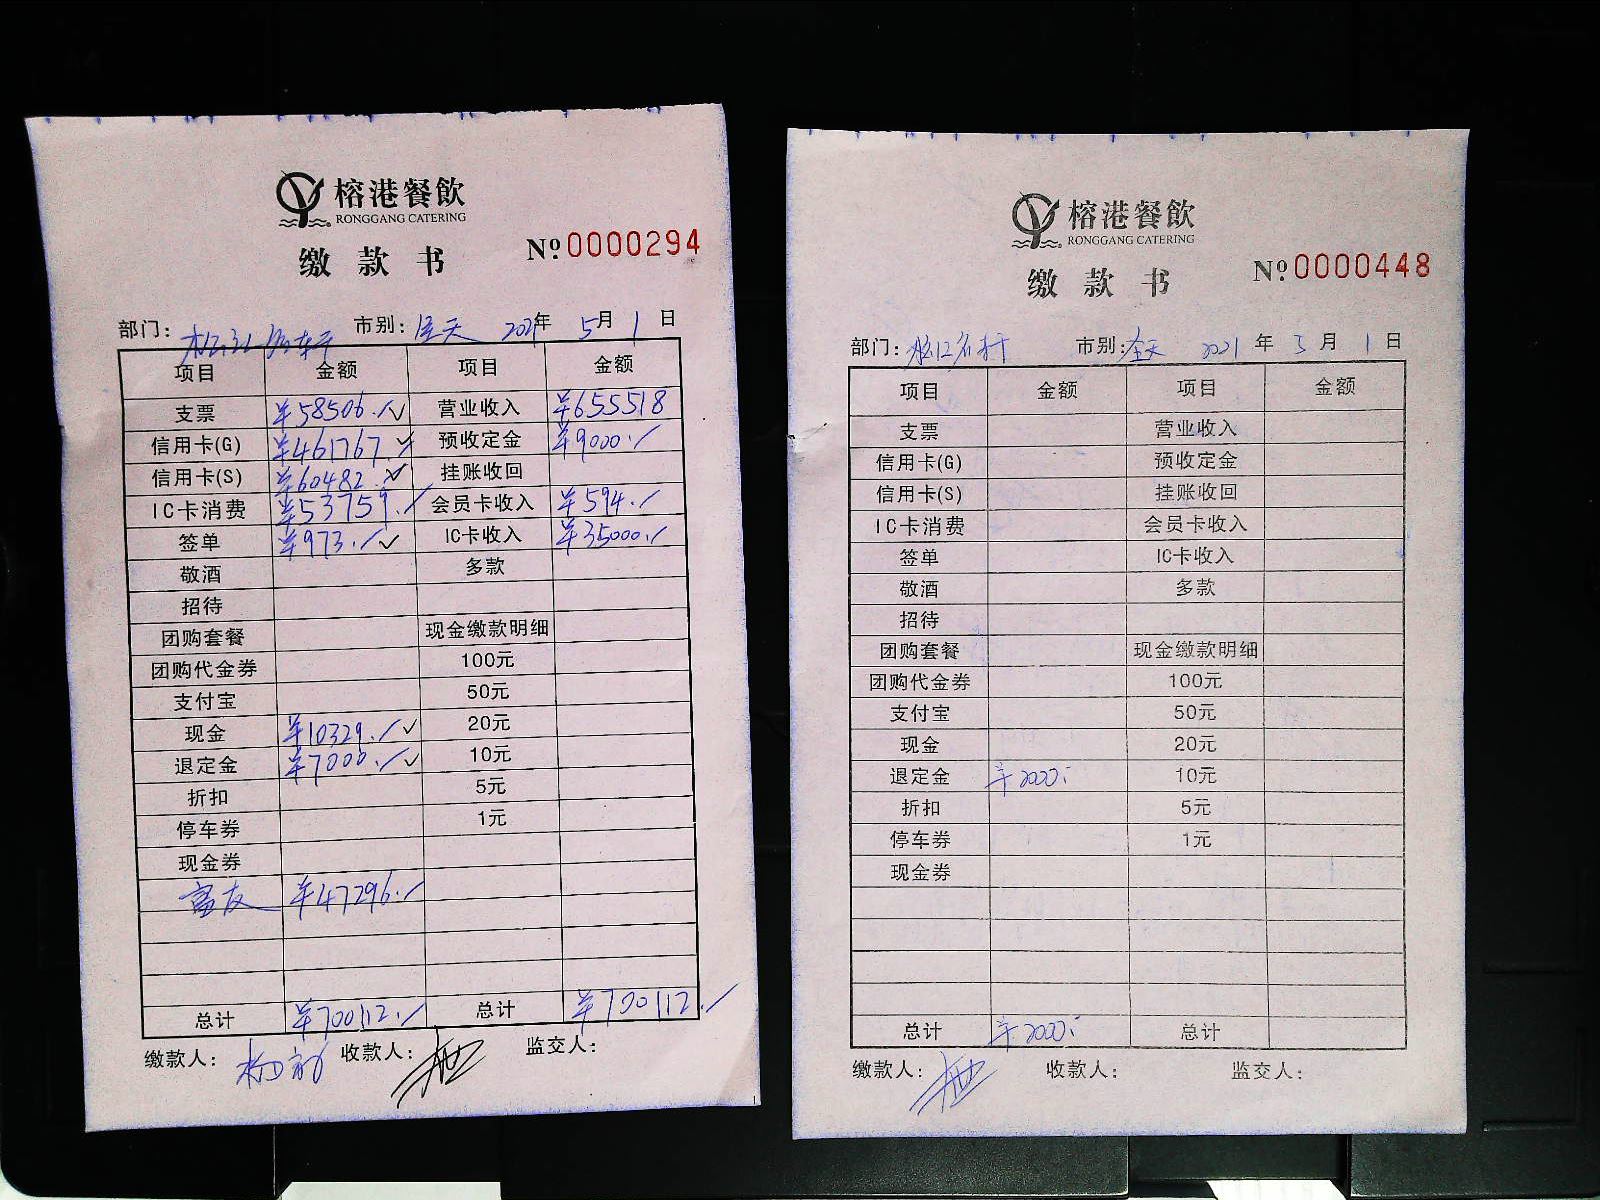 榕港餐飲
RONGGANG CATERING
缴款书 №0000294
部门: 市别: 全天 2021年 5月 1日
项目 金额 项目 金额
支票 ¥58506. 营业收入 ¥655518
信用卡(G) ¥461767. 预收定金 ¥9000.
信用卡(S) ¥60482. 挂账收回
IC卡消费 ¥53759. 会员卡收入 ¥594.
签单 ¥973. IC卡收入 ¥35000.
敬酒 多款
招待
团购套餐 现金缴款明细
团购代金券 100元
支付宝 50元
现金 ¥10329. 20元
退定金 ¥7000. 10元
折扣 5元
停车券 1元
现金券
富友 ¥47296.
总计 ¥700112. 总计 ¥700112.
缴款人: 收款人: 监交人:
榕港餐飲
RONGGANG CATERING
缴款书 №0000448
部门: 市别: 全天 2021年 5月 1日
项目 金额 项目 金额
支票 营业收入
信用卡(G) 预收定金
信用卡(S) 挂账收回
IC卡消费 会员卡收入
签单 IC卡收入
敬酒 多款
招待
团购套餐 现金缴款明细
团购代金券 100元
支付宝 50元
现金 20元
退定金 ¥2000. 10元
折扣 5元
停车券 1元
现金券
总计 ¥2000. 总计
缴款人: 收款人: 监交人: